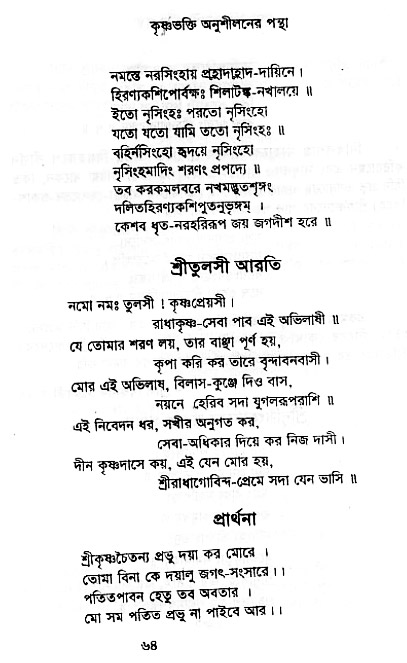 কৃষ্ণভক্তি অনুশীলনের পন্থা
নমস্তে নরসিংহায় প্রহ্লাদাহ্লাদ-দায়িনে।
হিরণ্যকশিপোর্বক্ষঃ শিলাটঙ্ক-নখালয়ে ॥
ইতো নৃসিংহঃ পরতো নৃসিংহো
যতো যতো যামি ততো নৃসিংহঃ ॥
বহির্নসিংহো হৃদয়ে নৃসিংহো
নৃসিংহমাদিং শরণং প্রপদ্যে ॥
তব করকমলবরে নখমদ্ভুতশৃঙ্গং
দলিতহিরণ্যকশিপুতনুভৃঙ্গম্ ।
কেশব ধৃত-নরহরিরূপ জয় জগদীশ হরে ॥
শ্রীতুলসী আরতি
নমো নমঃ তুলসী ! কৃষ্ণপ্রেয়সী।
রাধাকৃষ্ণ-সেবা পাব এই অভিলাষী ॥
যে তোমার শরণ লয়, তার বাঞ্ছা পূর্ণ হয়,
কৃপা করি কর তারে বৃন্দাবনবাসী।
মোর এই অভিলাষ, বিলাস-কুঞ্জে দিও বাস,
নয়নে হেরিব সদা যুগলরূপরাশি ॥
এই নিবেদন ধর, সখীর অনুগত কর,
সেবা-অধিকার দিয়ে কর নিজ দাসী।
দীন কৃষ্ণদাসে কয়, এই যেন মোর হয়,
শ্রীরাধাগোবিন্দ-প্রেমে সদা যেন ভাসি ॥
প্রার্থনা
শ্রীকৃষ্ণচৈতন্য প্রভু দয়া কর মোরে ।
তোমা বিনা কে দয়ালু জগৎ-সংসারে।।
পতিতপাবন হেতু তব অবতার ।
মো সম পতিত প্রভু না পাইবে আর।।
৬৪